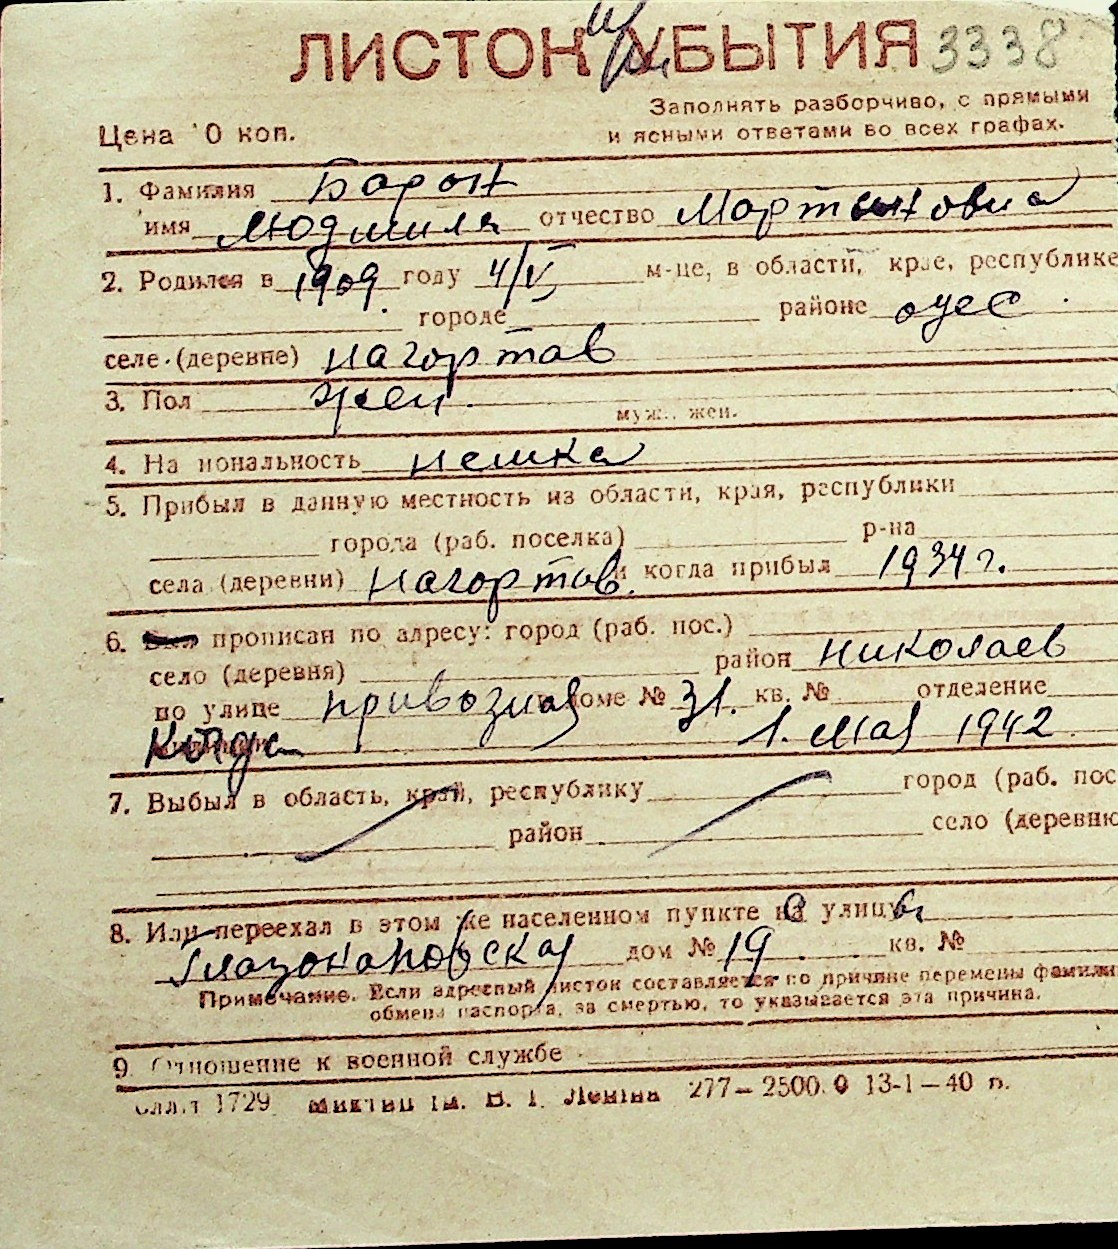 ЛИСТОК при УБЫТИЯ 3338
Заполнять разборчиво, с прямыми
Цена 10 коп. и ясными ответами во всех графах.
1. Фамилия Барон
имя Людмила отчество Мартыновна
2. Родился в 1909 году 4/V м-це, в области, крае, республике
городе районе одес.
селе (деревне) Нагортав
3. Пол жен. муж., жен.
4. Национальность немка
5. Прибыл в данную местность из области, края, республики
города (раб. поселка) р-на
села (деревни) Нагортав. и когда прибыл 1934 г.
6. прописан по адресу: город (раб. пос.)
село (деревня) район Николаев
по улице Привозная доме № 31. кв. № отделение
Когда 1. Мая 1942
7. Выбыл в область, край, республику город (раб. пос
район село (деревню
8. Или переехал в этом же населенном пункте на улицу
дом № 19. кв. №
Примечание. Если адресный листок составляется по причине перемены фамилии
обмена паспорта, за смертью, то указывается эта причина.
9 Отношение к военной службе
1729 ім. В. І. Леніна 277—2500.0 13-1—40 п.